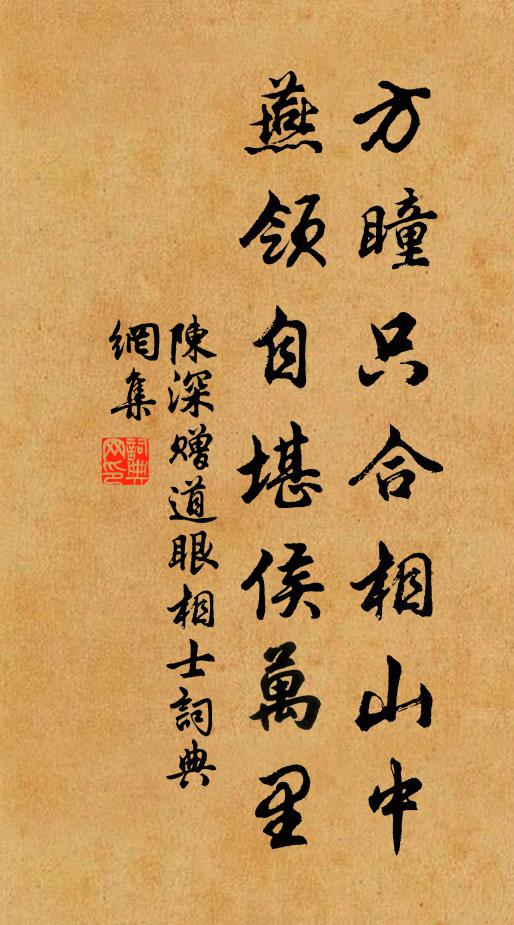 方瞳只合相山中
燕領自堪侯萬里
陳深贈道眼相士詞典
網集
詞典
网印